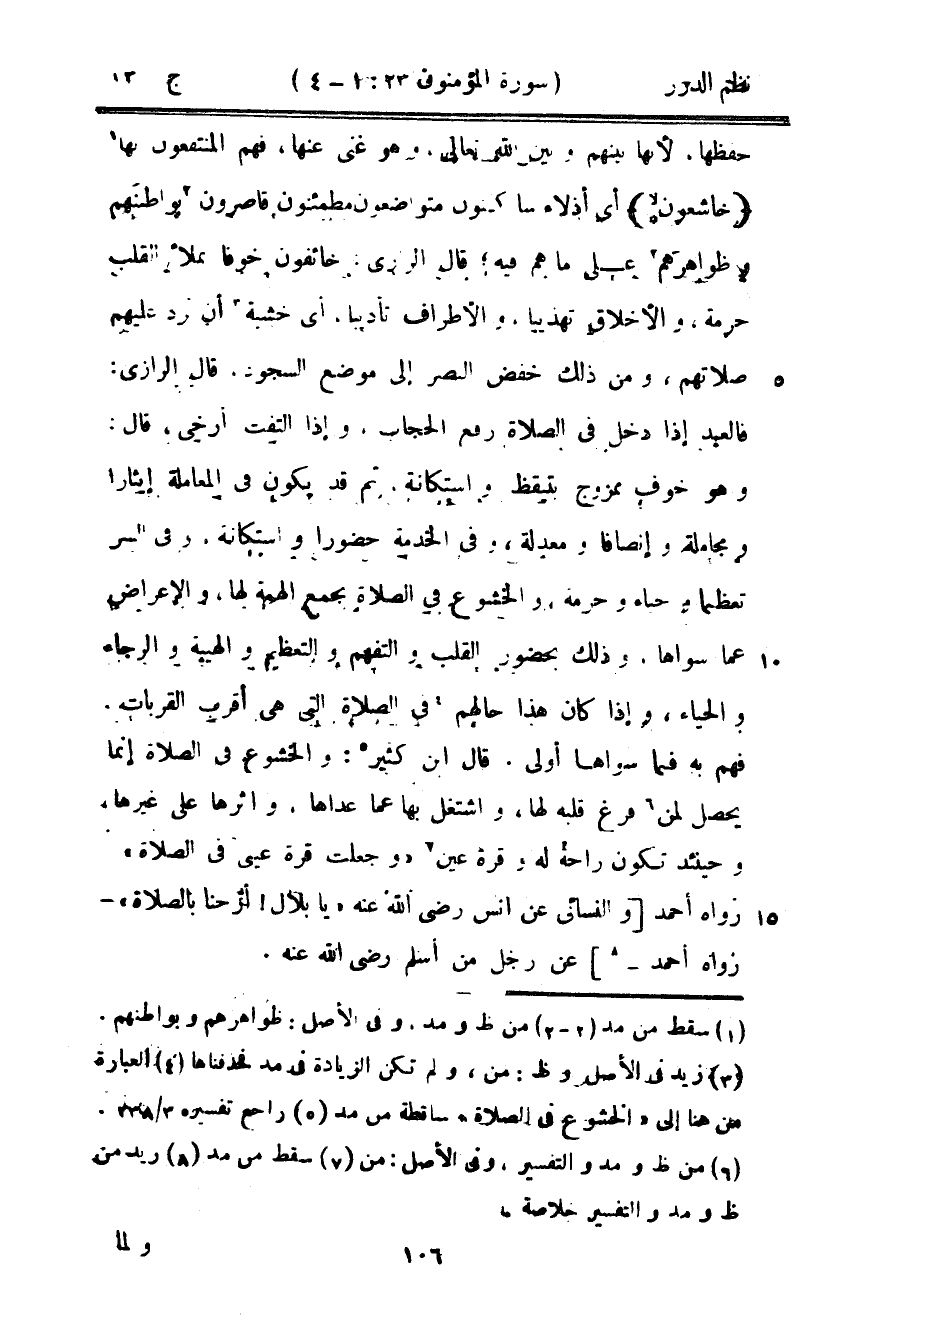 نظم الدرر ( سورة المؤمنون ٢٣ : ١ – ٤ ) ج ١٣
حفظها، لأنها بينهم و بين الله تعالى، و هو غنى عنها، فهم المنتفعون بها١
﴿ خاشعون ﴾ أى أذلاء ساكنون متواضعون مطمئنون قاصرون ٢بواطنهم
و ظواهرهم٢ على ما هم فيه؛ قال الرازى: خائفون خوفا يملأ القلب
حرمة، و الأخلاق تهذيبا، و الأطراف تأديبا، أى خشية٣ أن ترد عليهم
٥ صلاتهم، و من ذلك خفض البصر إلى موضع السجود، قال الرازى:
فالعبد إذا دخل فى الصلاة رفع الحجاب، و إذا التفت أرخى، قال:
و هو خوف ممزوج بتيقظ و استكانة، ثم قد يكون فى المعاملة إيثارا
و مجاملة و إنصافا و معدلة، و فى الخدمة حضورا و استكانة، و فى السر
تعظيما و حياء و حرمة، و الخشوع فى الصلاة بجمع الهمة لها، و الإعراض
١٠ عما سواها، و ذلك بحضور القلب و التفهم و التعظيم و الهيبة و الرجاء
و الحياء، و إذا كان هذا حالهم ٤فى الصلاة التى هى أقرب القربات،
فهم به فيما سواها أولى. قال ابن كثير٥: و الخشوع فى الصلاة إنما
يحصل لمن٦ فرغ قلبه لها، و اشتغل بها عما عداها، و اثرها على غيرها،
و حينئذ تكون راحة له و قرة عين٧ «و جعلت قرة عينى فى الصلاة»
١٥ رواه أحمد [و النسائى عن انس رضى الله عنه «يا بلال! أرحنا بالصلاة» –
رواه أحمد – ٨] عن رجل من أسلم رضى الله عنه.
(١) سقط من مد (٢-٢) من ظ و مد، و فى الأصل: ظواهرهم و بواطنهم.
(٣) زيد فى الأصل و ظ: من، و لم تكن الزيادة فى مد فحذفناها (٤) العبارة
من هنا إلى «الخشوع فى الصلاة» ساقطة من مد (٥) راجع تفسيره ٣/٢٣٨.
(٦) من ظ و مد و التفسير، و فى الأصل: من (٧) سقط من مد (٨) زيد من
ظ و مد و التفسير خلاصة.
١٠٦ و لما